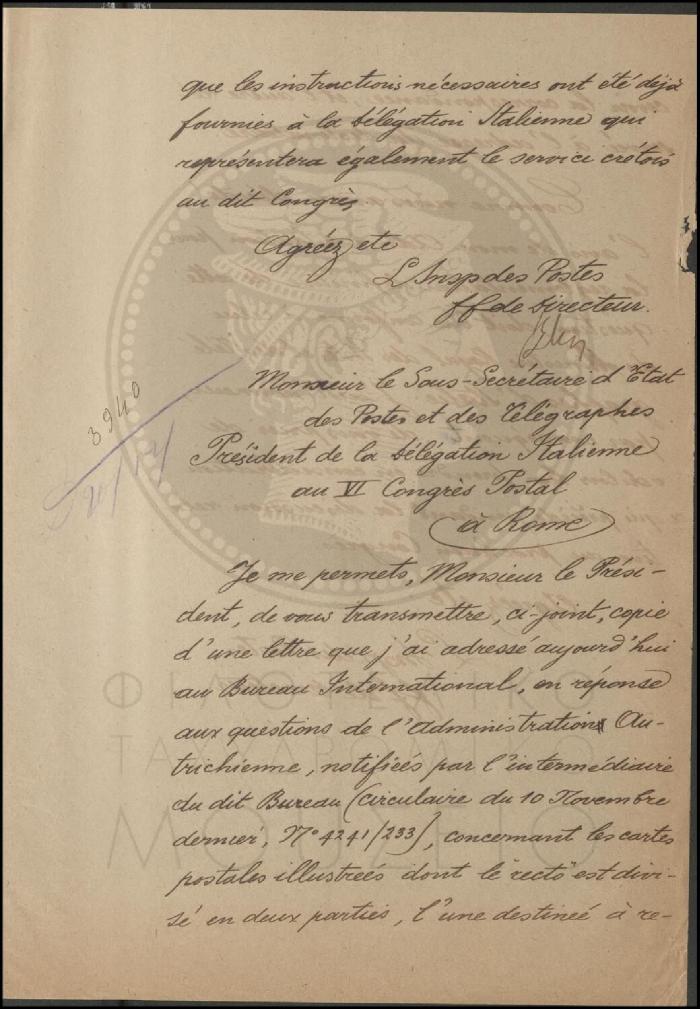 que les instructions nécessaires ont été déjà
fournies à la Délégation Italienne qui
représentera également le service crétois
au dit Congrès
Agréez etc
L'Insp des Postes
ff de Directeur.
Monsieur le Sous-Secrétaire d'Etat
des Postes et des Télégraphes
Président de la Délégation Italienne
au VI Congrès Postal
à Rome
3940
Je me permets, Monsieur le Prési-
dent, de vous transmettre, ci-joint, copie
d'une lettre que j'ai adressé aujourd'hui
au Bureau International, en réponse
aux questions de l'Administration Au-
trichienne, notifiées par l'intermédiaire
du dit Bureau (circulaire du 10 Novembre
dernier, N° 4241/233), concernant les cartes
postales illustrées dont le "recto" est divi-
sé en deux parties, l'une destinée à re-
ΦΙΛΟΤΕΛΙΚΟ
ΜΟΥΣΕΙΟ